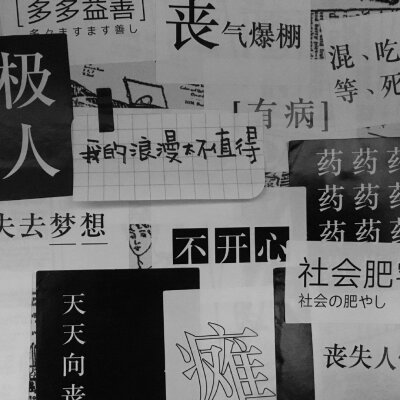 [多多益善]
多々ますます善し
丧气爆棚
混、吃
等、死
极
人
[有病]
我的浪漫太不值得
药药药
药药药
药药药
失去梦想
不开心
社会肥
社会の肥やし
天天向丧
瘫
丧失人